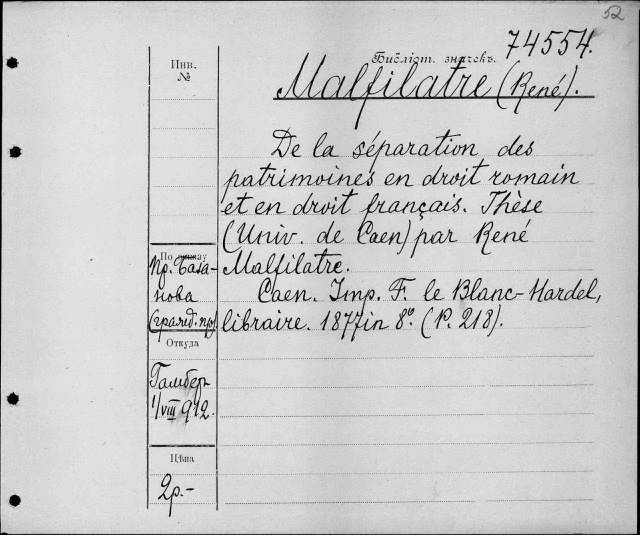 52
74554.
Инв.
№
Библіот. значекъ.
Malfilatre (René).
De la séparation des
patrimoines en droit romain
et en droit français. Thèse
(Univ. de Caen) par René
Malfilatre.
Caen. Imp. F. le Blanc-Hardel,
libraire. 1877 in 8º. (P. 218).
По заказу
Пр. База-
нова
(гражд. пр.)
Откуда
Гамберъ
1/VIII 912.
Цѣна
2р.-